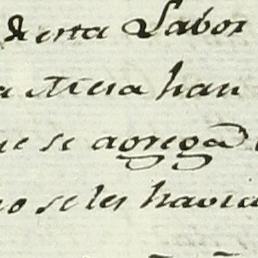 de esta Labor
a Mesa han
se agrega
no se les havia